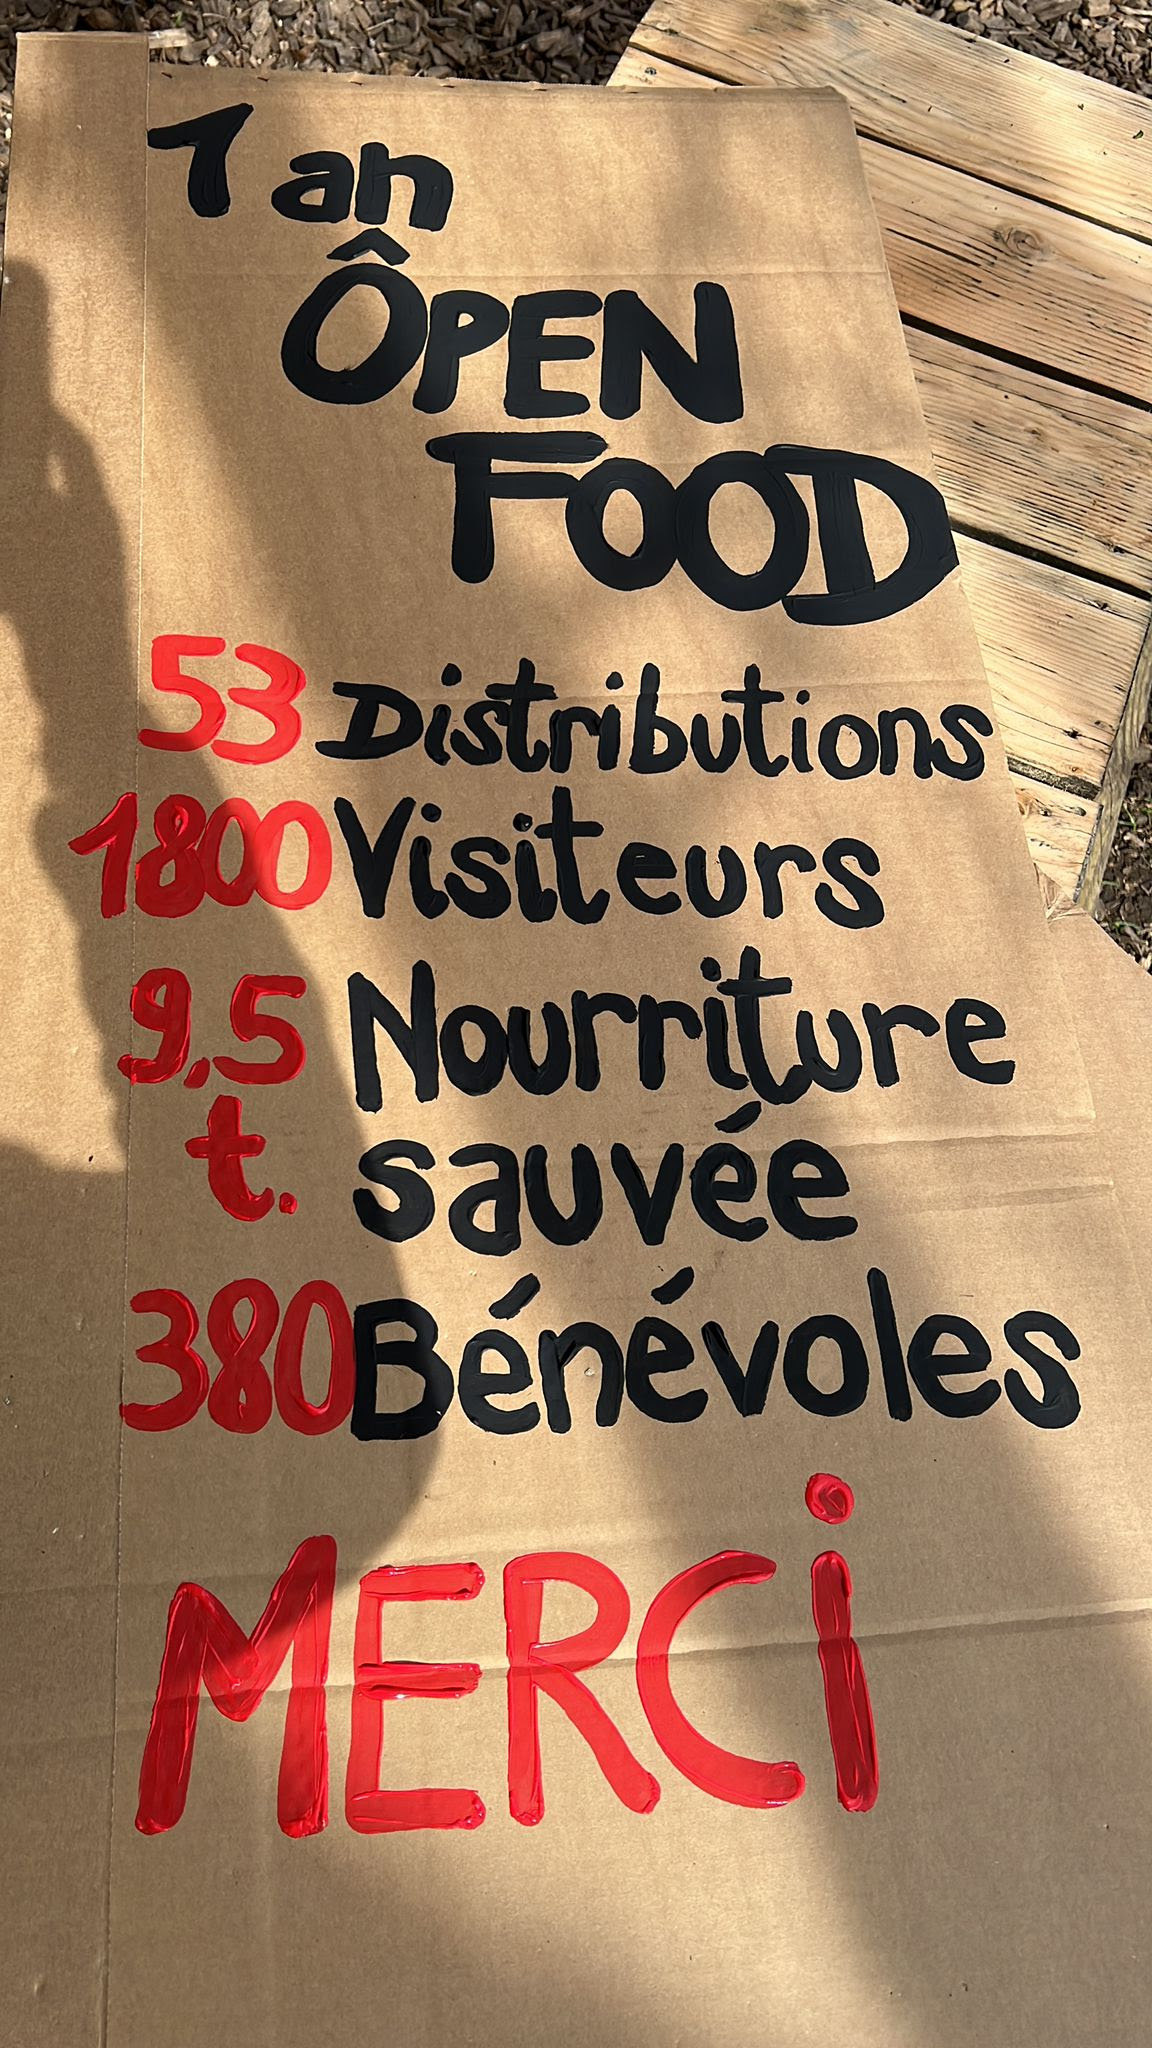 1 an
ÔPEN
FOOD
53 Distributions
1800 Visiteurs
9,5 Nourriture
t. sauvée
380 Bénévoles
MERCi